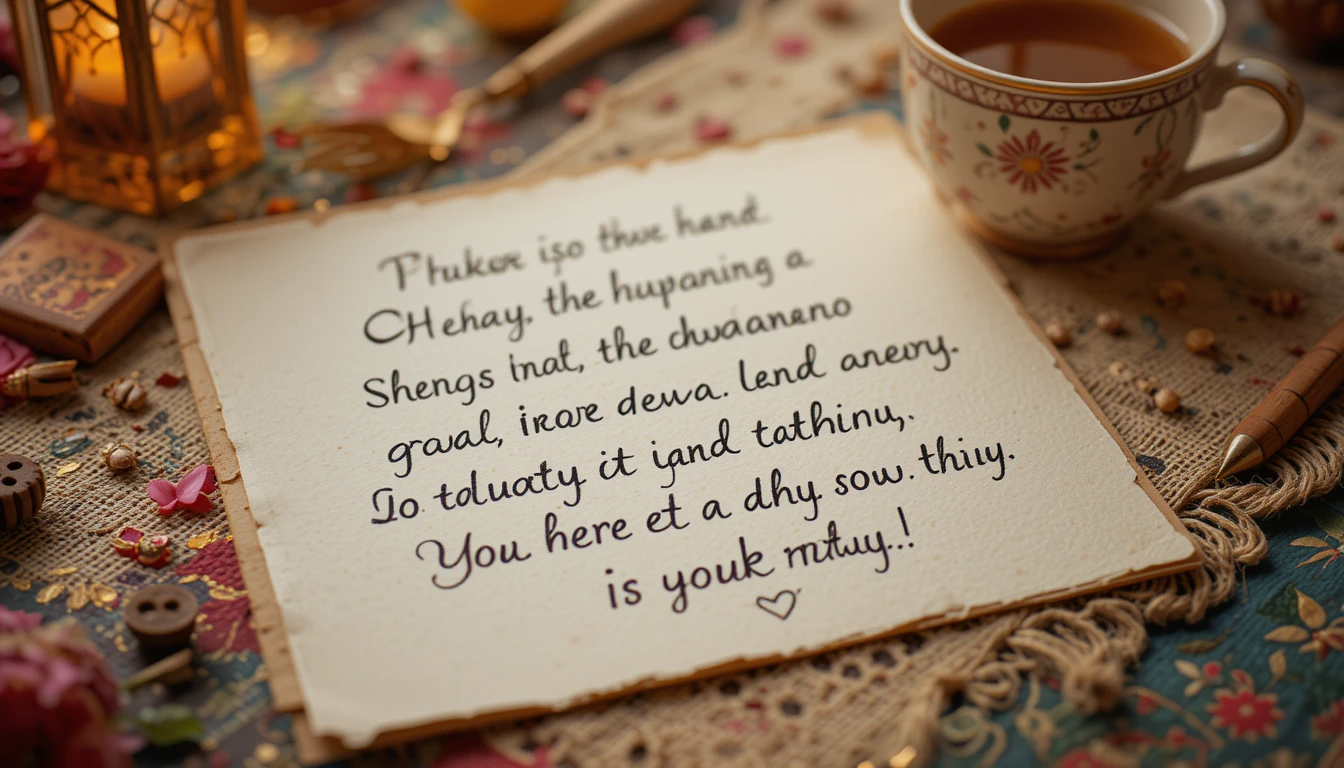 Thukor iso thwe hand
CHehay, the hupaning a
Shengs inat, the dwaaneno
graal, irare dewa. lend aneury.
Io toluaty it jand tathinu,.
You here et a dhy sow. thiiy.
is youk mtuy.!